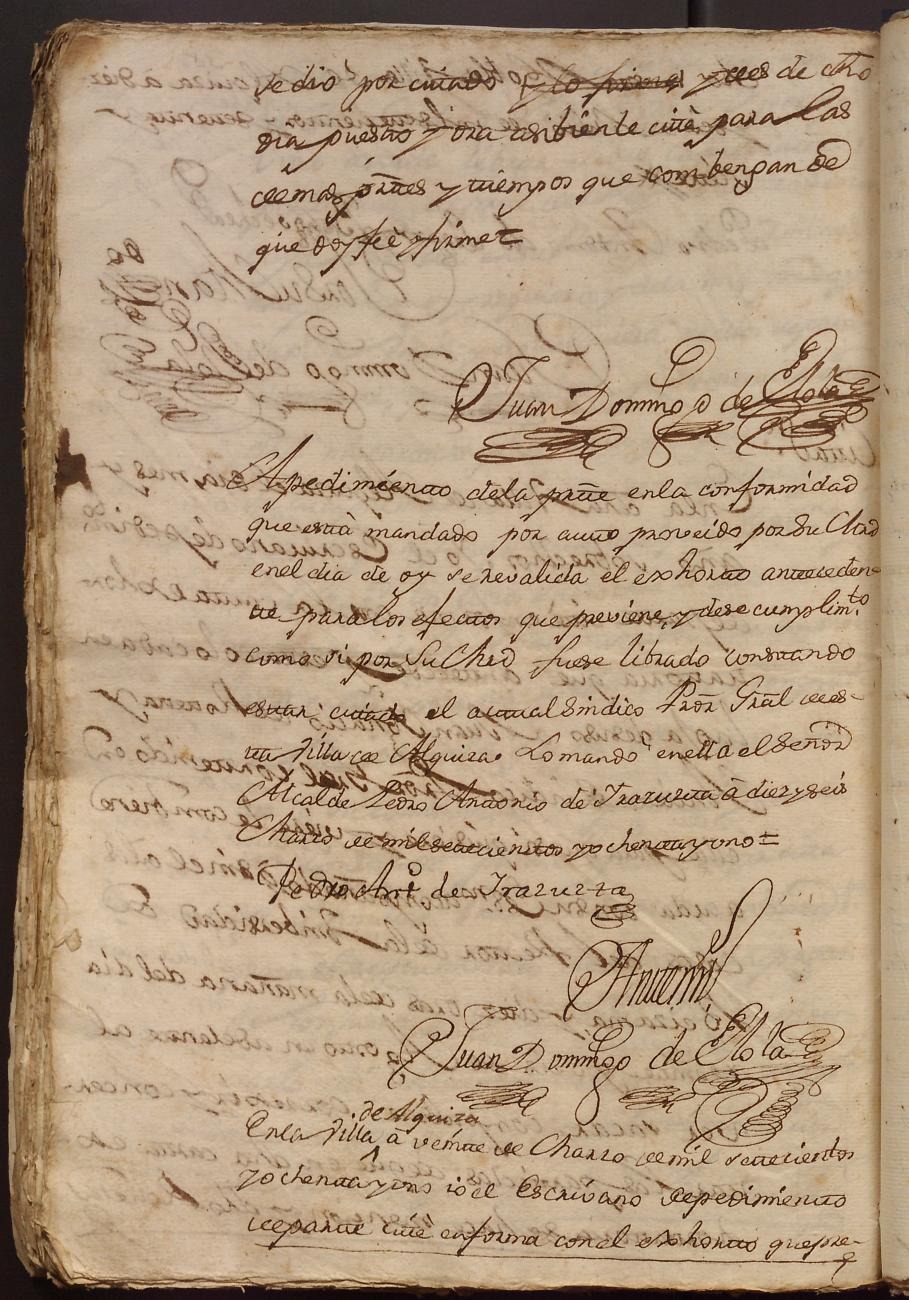 se dio por citado y lo firmó y ees de dho
dia puesto y ora asibiente cité para las
demas prtes y tiempos que combengan de
que doy feè y firmé =
Juan Domingo de Elola
A pedimiento de la prte en la conformidad
que está mandado por auto proveido por su Mrd
en el dia de oy se revalida el exhorto anteceden-
te para los efectos que previene, y dese cumplim.to
como si por su Mrd fuese librado constando
estar citado el actual Sindico Pror Gral de es-
ta Villa de Alquiza. Lo mando en ella el Señor
Alcalde Pedro Antonio de Irazuzta à diez y seis
Marzo de mil setecientos y ochenta y uno =
Pedro Ant.o de Irazuzta
Antemi
Juan Domingo de Elola
En la Villa de Alquiza à veinte de Marzo de mil setecientos
y ochenta y uno io el Escrivano de pedimiento
de parte cité en forma con el exhorto que pre-